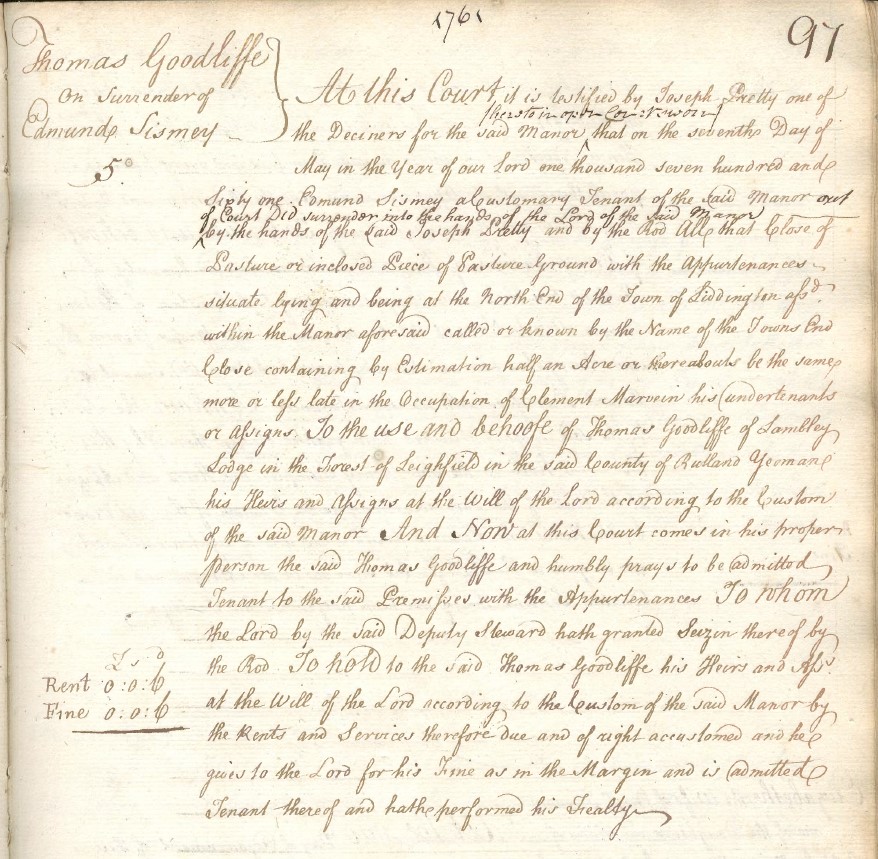 1761
97
Thomas Goodliffe
On Surrender of
Edmund Sismey
5
At this Court it is testified by Joseph Pretty one of
thereto in open Court sworn
the Deciners for the said Manor that on the seventh Day of
May in the Year of our Lord one thousand seven hundred and
Sixty one Edmund Sismey a Customary Tenant of the said Manor out
of Court Did surrender into the hands of the Lord of the said Manor
by the hands of the said Joseph Pretty and by the Rod All that Close of
Pasture or inclosed Piece of Pasture Ground with the Appurtenances
situate lying and being at the North End of the Town of Liddington afsd.
within the Manor aforesaid called or known by the Name of the Towns End
Close containing by Estimation half an Acre or thereabouts be the same
more or less late in the Occupation of Clement Marvein his undertenants
or Assigns To the use and behoofe of Thomas Goodliffe of Lambley
Lodge in the Forest of Leighfield in the said County of Rutland Yeoman
his Heirs and Assigns at the Will of the Lord according to the Custom
of the said Manor And Now at this Court comes in his proper
person the said Thomas Goodliffe and humbly prays to be admitted
Tenant to the said Premisses with the Appurtenances To whom
the Lord by the said Deputy Steward hath granted Seizin thereof by
the Rod To hold to the said Thomas Goodliffe his Heirs and Ass.
at the Will of the Lord according to the Custom of the said Manor by
the Rents and Services therefore due and of right accustomed and he
gives to the Lord for his Fine as in the Margin and is admitted
Tenant thereof and hath performed his Fealty
L s d
Rent 0:0:6
Fine 0:0:6